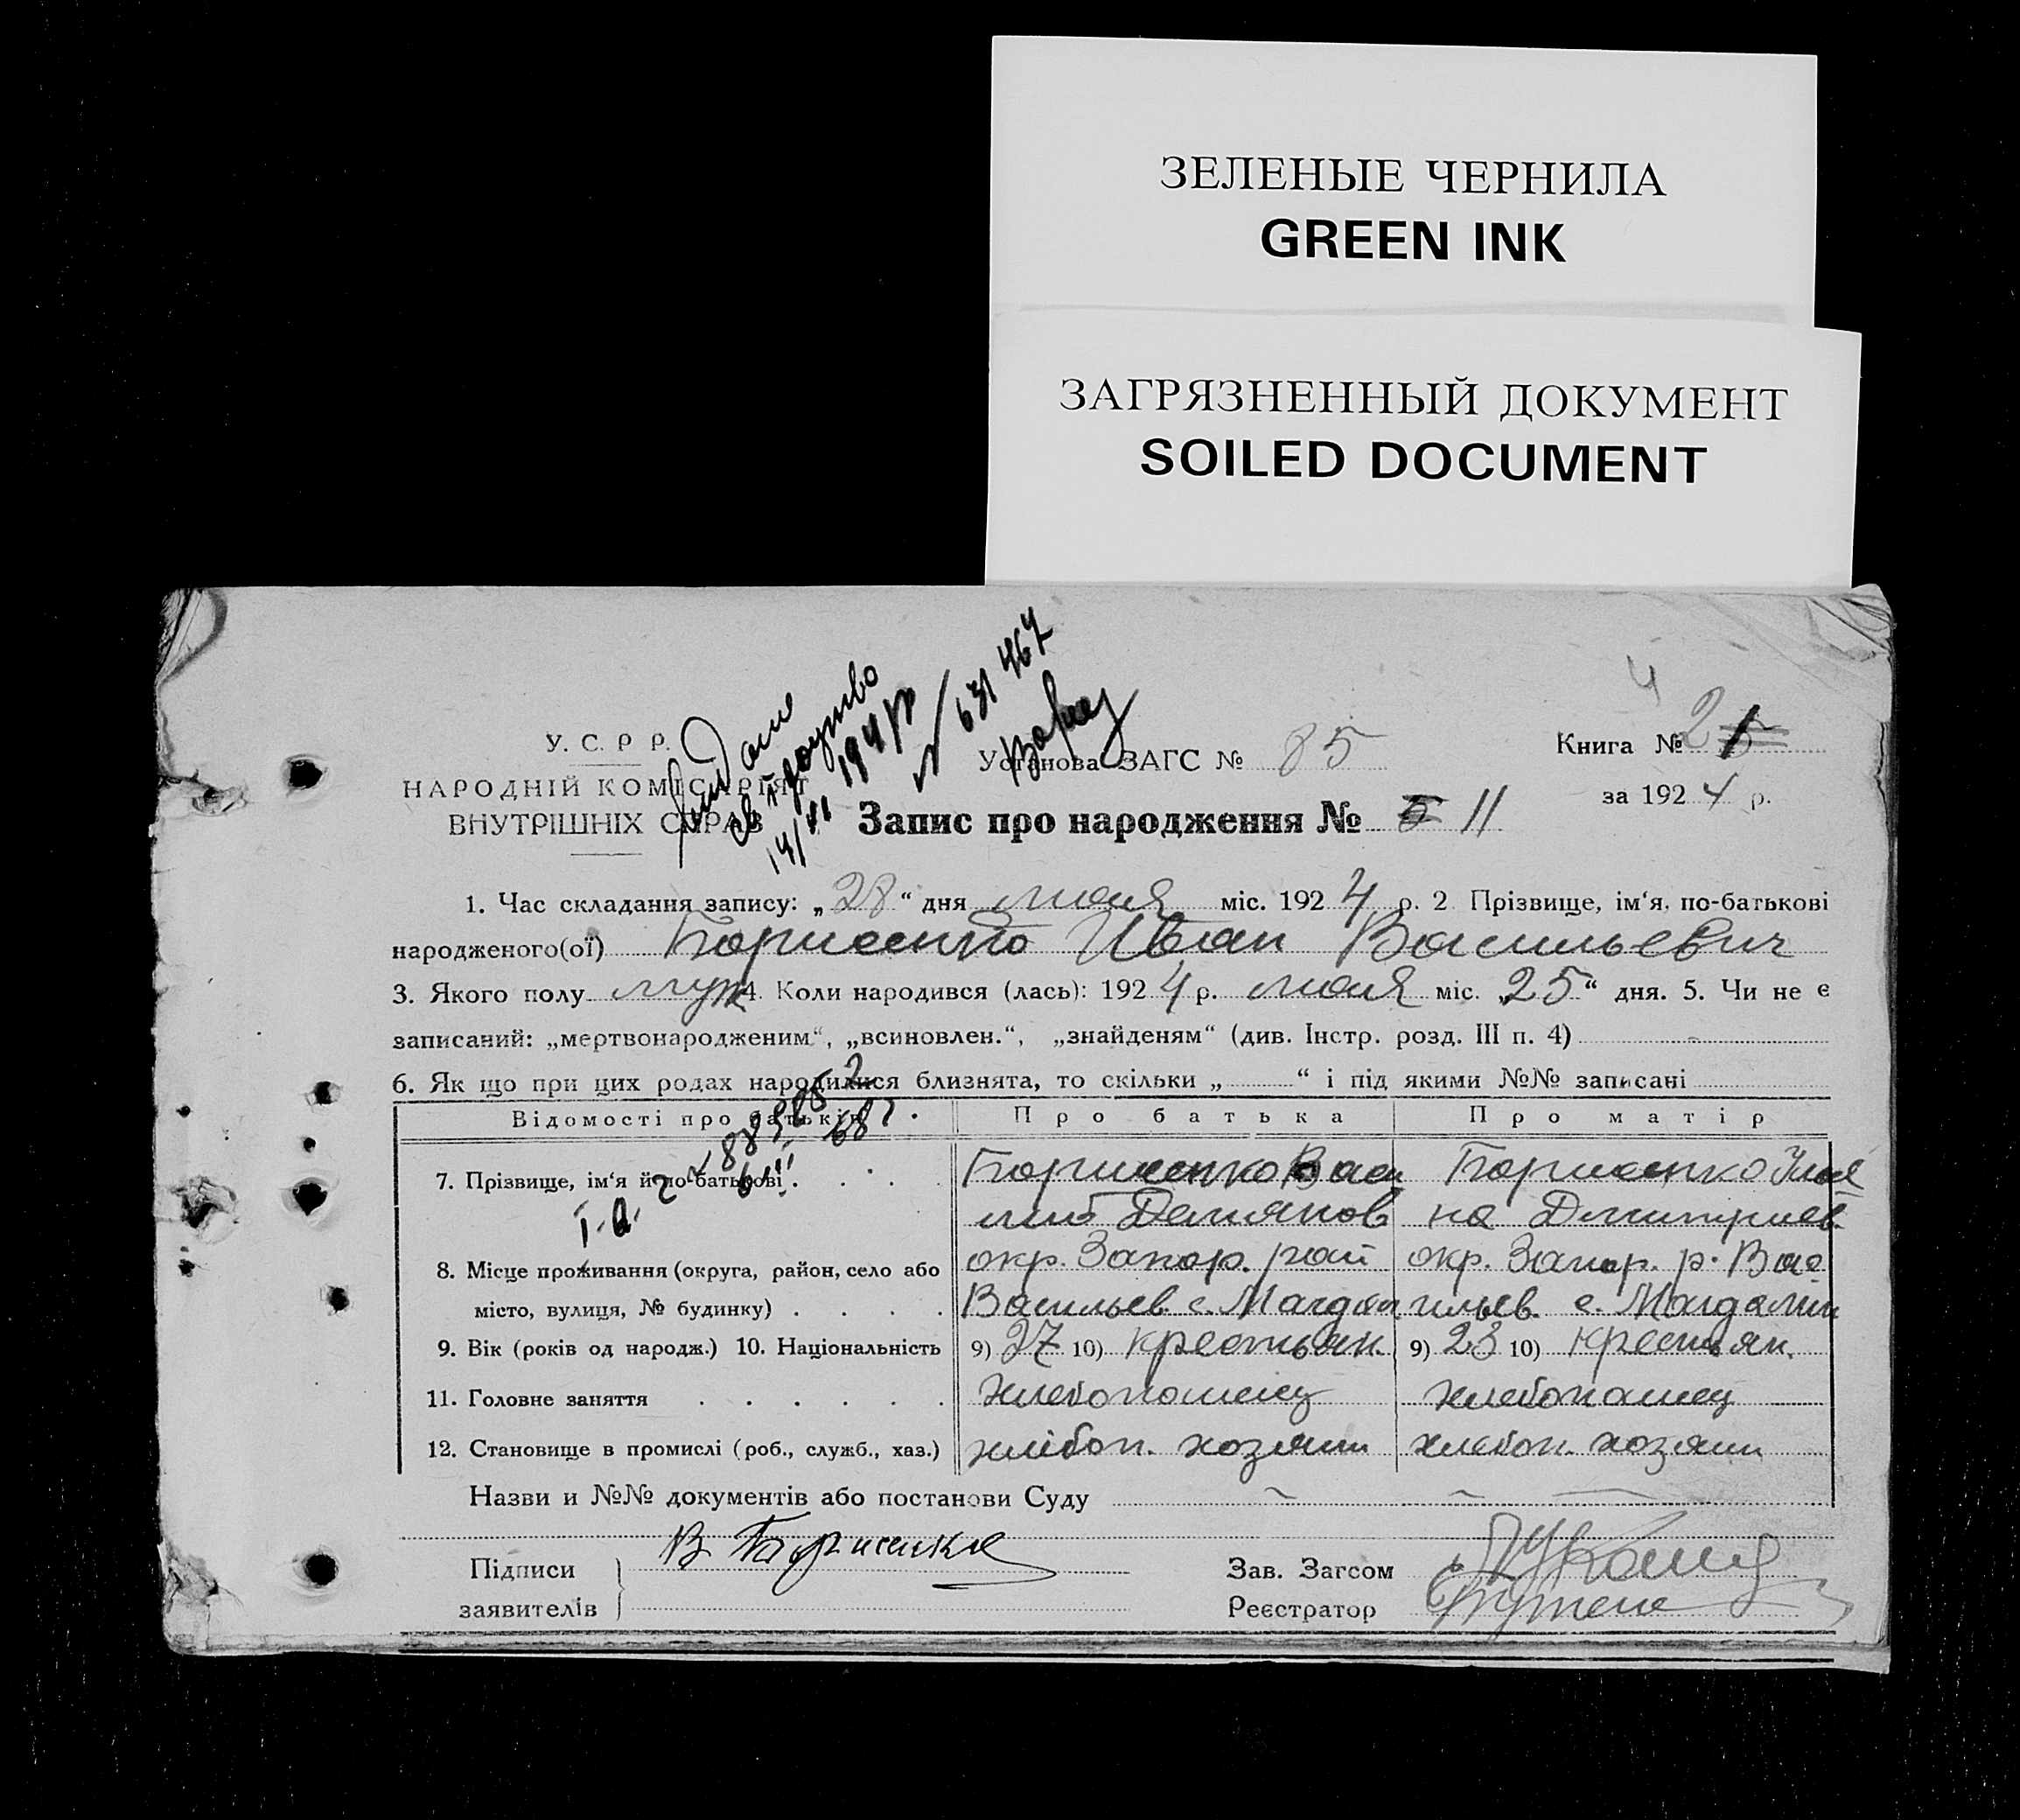 ЗЕЛЕНЫЕ ЧЕРНИЛА
GREEN INK
ЗАГРЯЗНЕННЫЙ ДОКУМЕНТ
SOILED DOCUMENT
4
631 467
У. С. Р Р.
НАРОДНІЙ КОМІСАРІЯТ
ВНУТРІШНІХ СПРАВ
Установа ЗАГС № 85
Книга № 2
за 1924 р.
Запис про народження № 11
1. Час складання запису: „28“ дня июля міс. 1924 р. 2 Прізвище, ім‘я, по-батькові
народженого(ої) Иван Васильевич
3. Якого полу муж 4. Коли народився (лась): 1924 р. июля міс. „25“ дня. 5. Чи не є
записаний: „мертвонародженим“, „всиновлен.“, „знайденям“ (див. Інстр. розд. III п. 4)
6. Як що при цих родах народилися близнята, то скільки „ “ і під якими №№ записані
Відомості про батьків Про батька Про матір
7. Прізвище, ім‘я й по-батькові
8. Місце проживання (округа, район, село або окр. Запор. рай окр. Запор. р. Васи
місто, вулиця, № будинку) Васильев. с. Магдал льев. с. Магдалин
9. Вік (років од народж.) 10. Національність 9) 27 10) крестьян. 9) 23 10) крестьян.
11. Головне заняття хлебопашец хлебопашец
12. Становище в промислі (роб., служб., хаз.) хлібоп. хозяин хлебоп. хозяин
Назви и №№ документів або постанови Суду
Підписи
заявителів
Зав. Загсом
Реєстратор